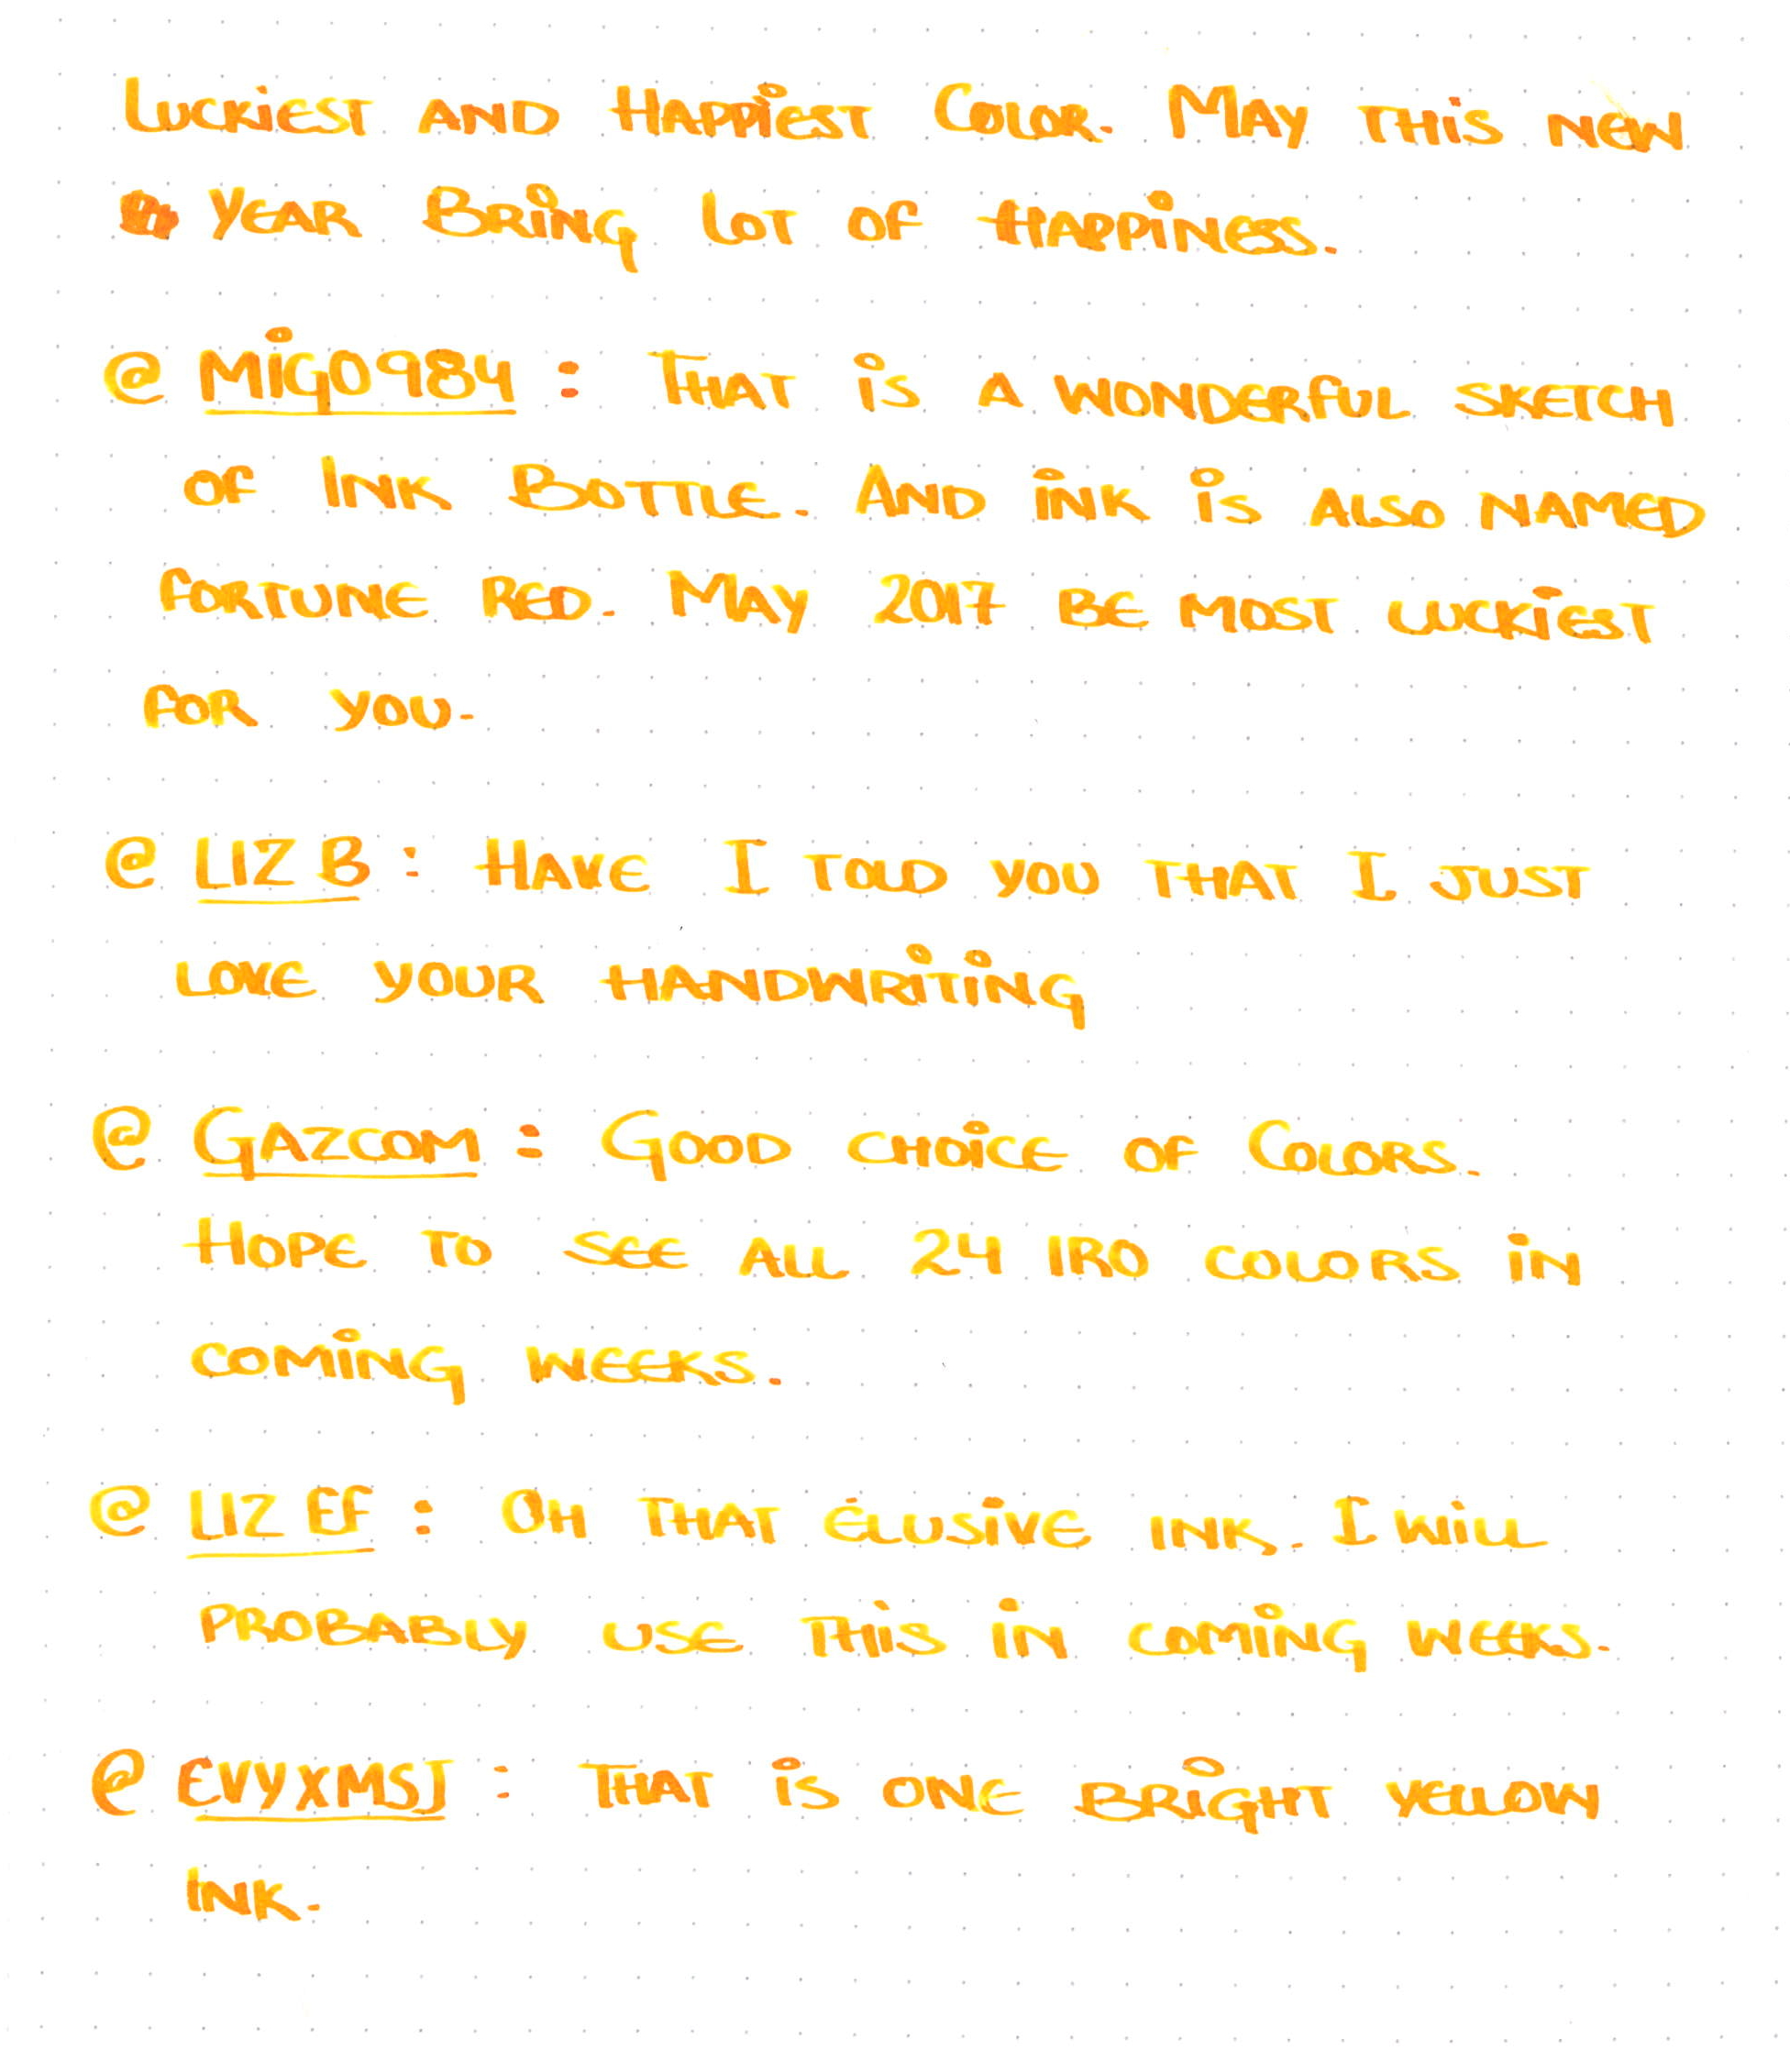 Luckiest and Happiest Color. May this new
year Bring lot of Happiness.
@ MiG0984 : That is a wonderful sketch
of Ink Bottle. And ink is also named
fortune red. May 2017 be most luckiest
for you.
@ LIZ B : Have I told you that I just
love your handwriting
@ Gazcom : Good choice of Colors.
Hope to see all 24 IRO colors in
coming weeks.
@ LIZ EF : Oh that elusive ink. I will
probably use this in coming weeks.
@ EVYXMSJ : That is one bright yellow
Ink.